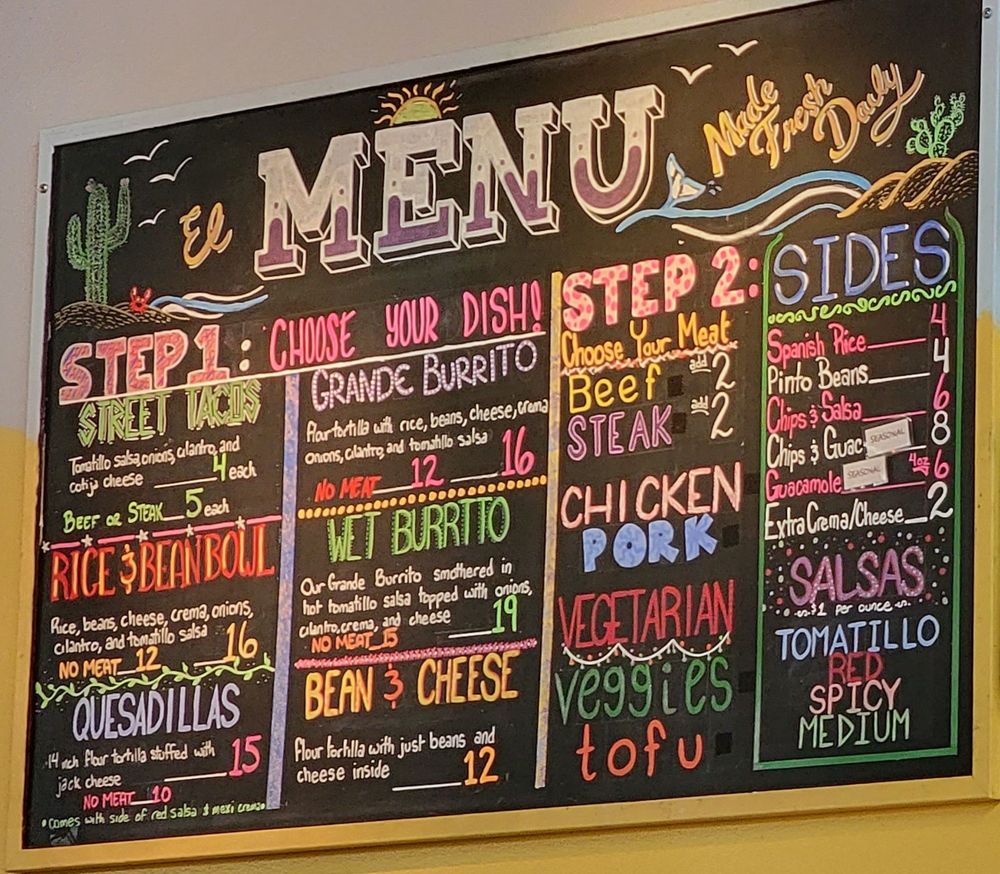 El MENU
Made
Fresh
Daily
STEP 1: CHOOSE YOUR DISH!
STREET TACOS
Tomatillo salsa, onions, cilantro, and
cotija cheese 4 each
BEEF OR STEAK 5 each
RICE & BEAN BOWL
Rice, beans, cheese, crema, onions,
cilantro, and tomatillo salsa 16
NO MEAT 12
QUESADILLAS
14 inch flour tortilla stuffed with
jack cheese 15
NO MEAT 10
*comes with side of red salsa & mexi crema*
GRANDE BURRITO
flour tortilla with rice, beans, cheese, crema
onions, cilantro, and tomatillo salsa
NO MEAT 12 16
WET BURRITO
Our Grande Burrito smothered in
hot tomatillo salsa topped with onions,
cilantro, crema, and cheese 19
NO MEAT 15
BEAN & CHEESE
flour tortilla with just beans and
cheese inside 12
STEP 2:
Choose Your Meat
Beef add 2
STEAK add 2
CHICKEN
PORK
VEGETARIAN
veggies
tofu
SIDES
Spanish Rice 4
Pinto Beans 4
Chips & Salsa 6
Chips & Guac SEASONAL 8
Guacamole SEASONAL 4oz 6
Extra Crema/Cheese 2
SALSAS
$1 per ounce
TOMATILLO
RED
SPICY
MEDIUM